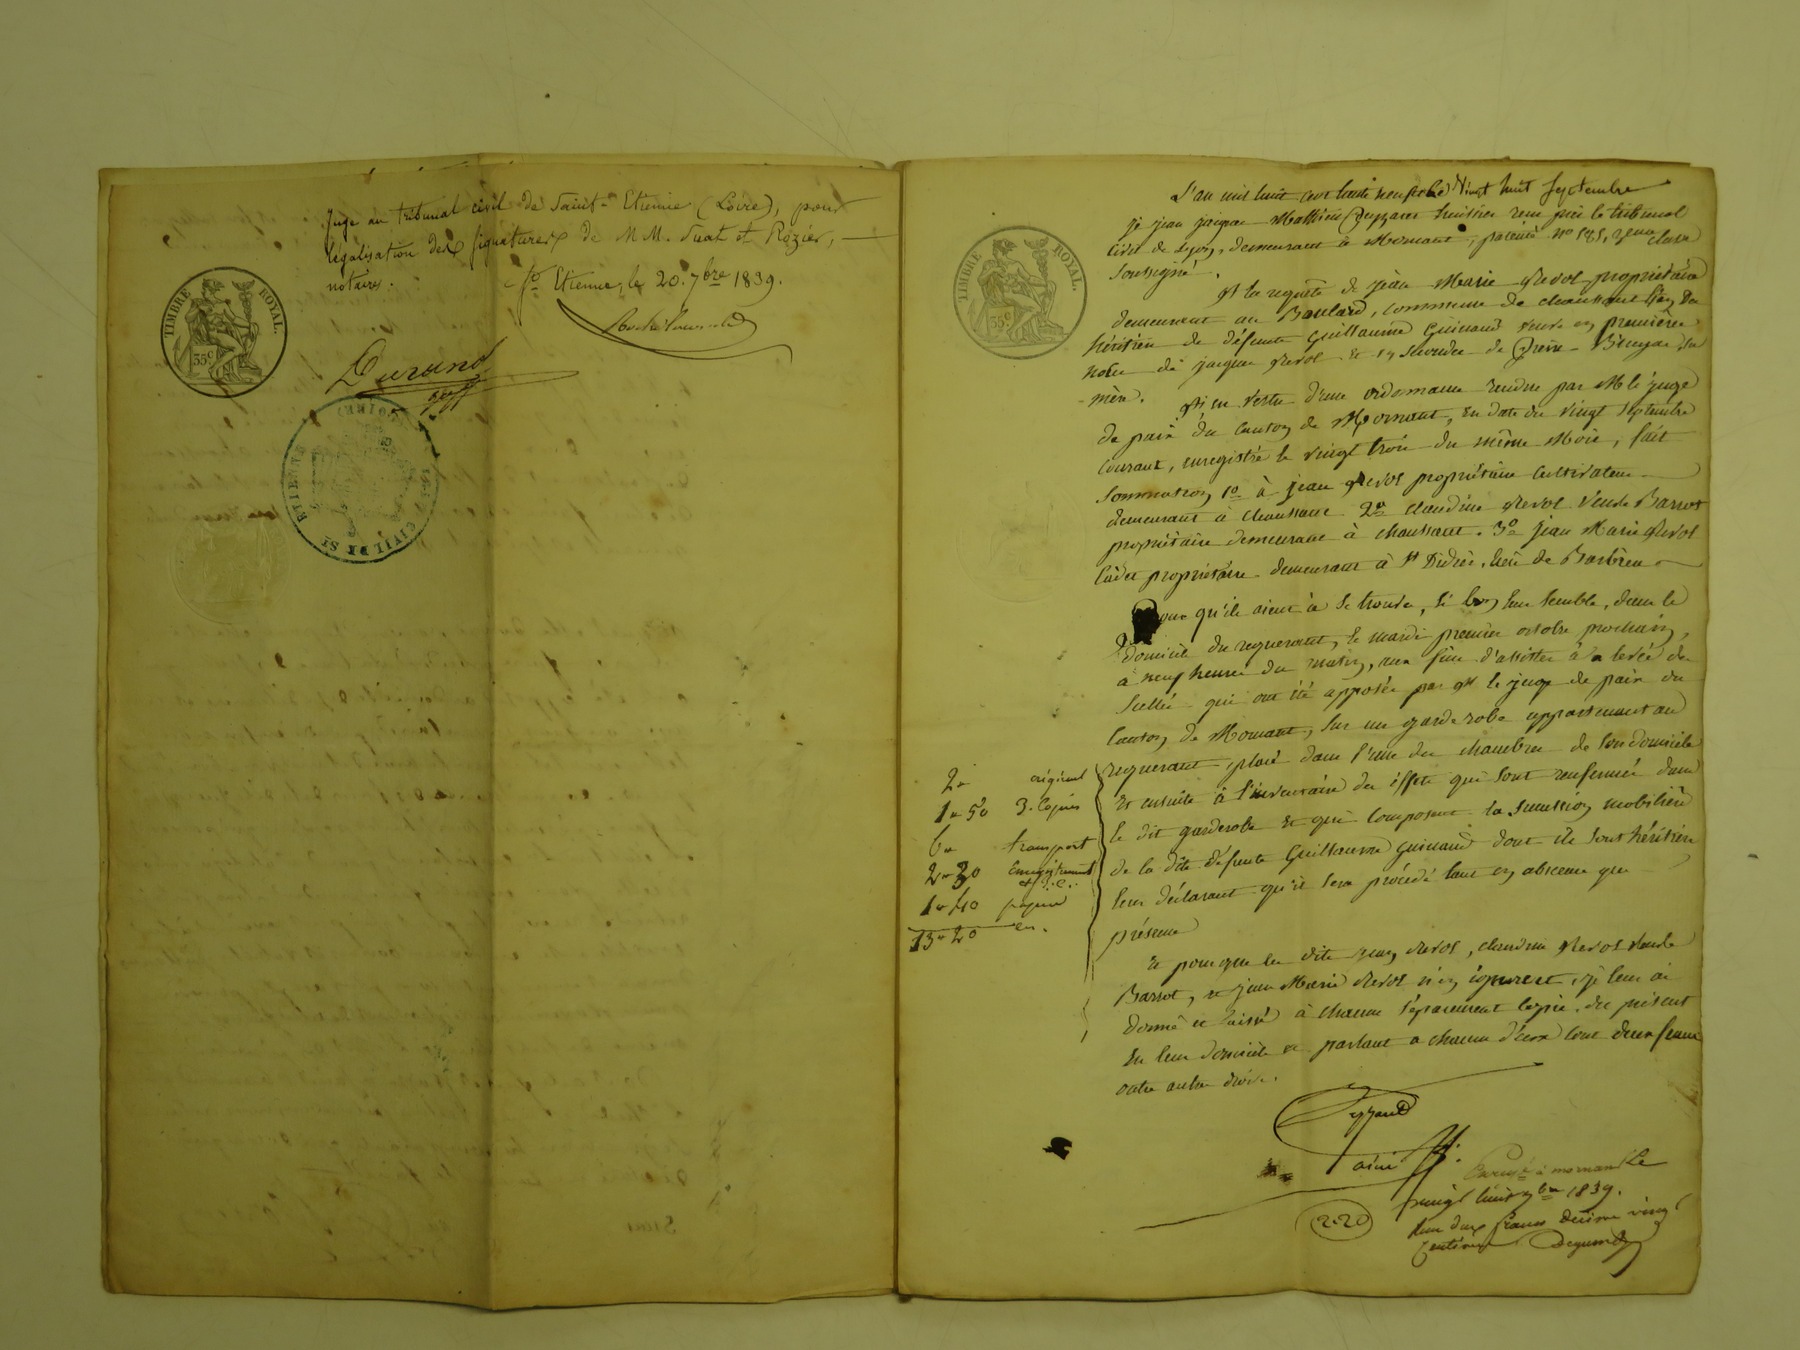 Juge au tribunal civil de Saint-Etienne (Loire), pour
légalisation des signatures de MM. Suat et Rozier,
notaires.
St Etienne, le 20. 7bre 1839.
TIMBRE ROYAL.
35c
Durand
ETIENNE
CIVIL DE ST
(LOIRE)
L'an mil huit cent trente neuf et le vingt huit septembre
je jean jacques Matthieu Peyzaret huissier reçu près le tribunal
Civil de Lyon, demeurant à Mornant, patenté No 585, 3eme classe
Soussigné.
TIMBRE ROYAL.
35c
A la requête de jean Marie Revol propriétaire
demeurant au Boulard, commune de chaussant
héritier de défunte Guillaume Guinand veuve en première
noces de jacques Revol et en secondes de Pierre Bruyas sa
mère.
Et en vertu d'une ordonnance rendue par M le juge
de paix du Canton de Mornant, en date du vingt septembre
Courant, enregistrée le vingt trois du même Mois, fait
Sommation 1o à jean Revol propriétaire Cultivateur
demeurant à chaussant 2o claudine Revol Veuve Barrot
propriétaire demeurant à chaussant. 3o jean Marie Revol
Cadet propriétaire demeurant à St Didier, lieu de Barbieu
Pour qu'ils aient à se trouver, si bon leur semble, dans le
domicile du requerant, le mardi premier octobre prochain,
à neuf heures du matin, aux fins d'assister à la levée des
Scellés qui ont été apposés par M le juge de paix du
Canton de Mornant, sur un garde robe appartenant au
requerant, placé dans l'une des chambres de son domicile
Et ensuite à l'inventaire des effets qui sont renfermés dans
le dit garderobe et qui Composent la succession mobilière
de la dite défunte Guillaume Guinand dont ils sont héritiers
leur déclarant qu'il sera procédé tant en absence que
présence
2 " original
1 " 50 3. Copies
6 " transport
2 " 30 Enregistrement
1 " 40 papier
13 " 20
Et pour que les dits jean Revol, claudine Revol Veuve
Barrot, et jean Marie Revol n'en ignorent, je leur ai
donné et laissé à chacun séparement Copie du présent
en leur domicile et parlant à chacun d'eux Cout deux francs
outre autres droits.
ainé
2.20
Enregé à mornant le
vingt huit 7bre 1839.
Reçu deux francs décime vingt
Centimes